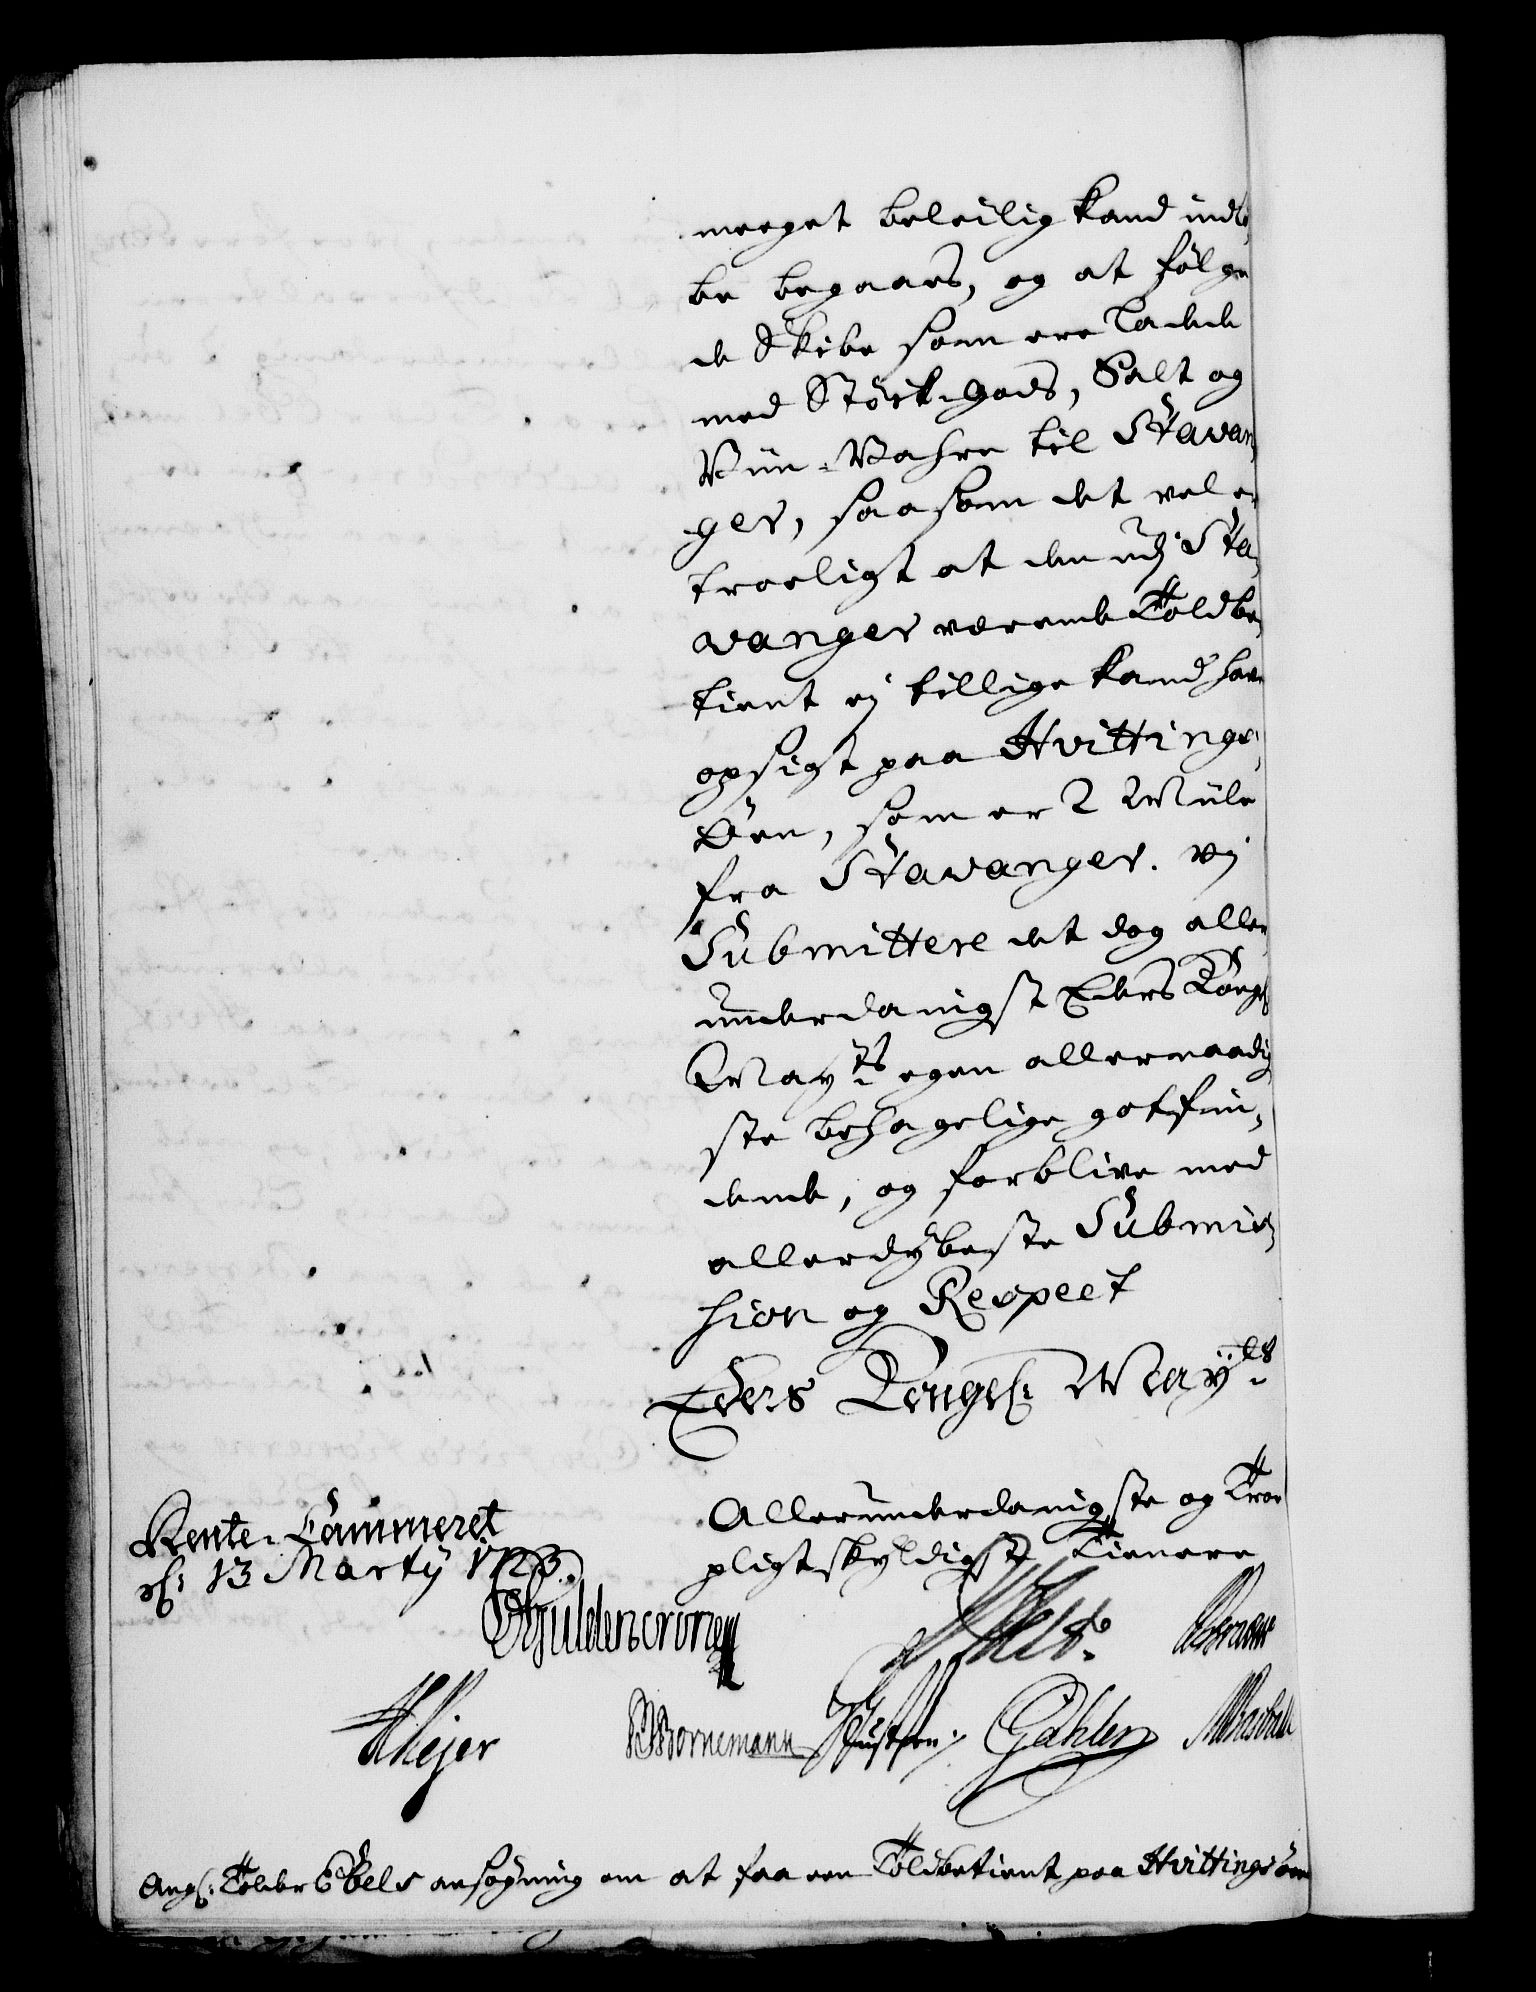 meeget beleilig kand indlø„
be begaaes, og at følge
de Skibe som ere ladde
med Støck-gods, Salt og
Viin-Vahre til Stavan„
ger, saasom det vel er
troeligt at den udj Sta„
vanger værende Toldbe„
tient ej tillige kand have
opsigt paa Hvittings„
Øen, som er 2 Miile
fra Stavanger. Vj
Submittere det dog aller„
underdanigst Eders Kongl:
May:ts egen allernaadig
ste behagelige gotfin„
dende, og forblive med
allerdybeste Submis„
sion og Respect
Eders Kongel: May:ts
Allerunderdanigste og Troe
pligtskyldigste Tienere
Rente-Cammeret
d: 13 Martij 1723.
Guldencrone
Mejer
Bornemann
Gähler
Ang: Tolder Ebels ansøgning om at faa een Toldbetient paa Hvittingsøen